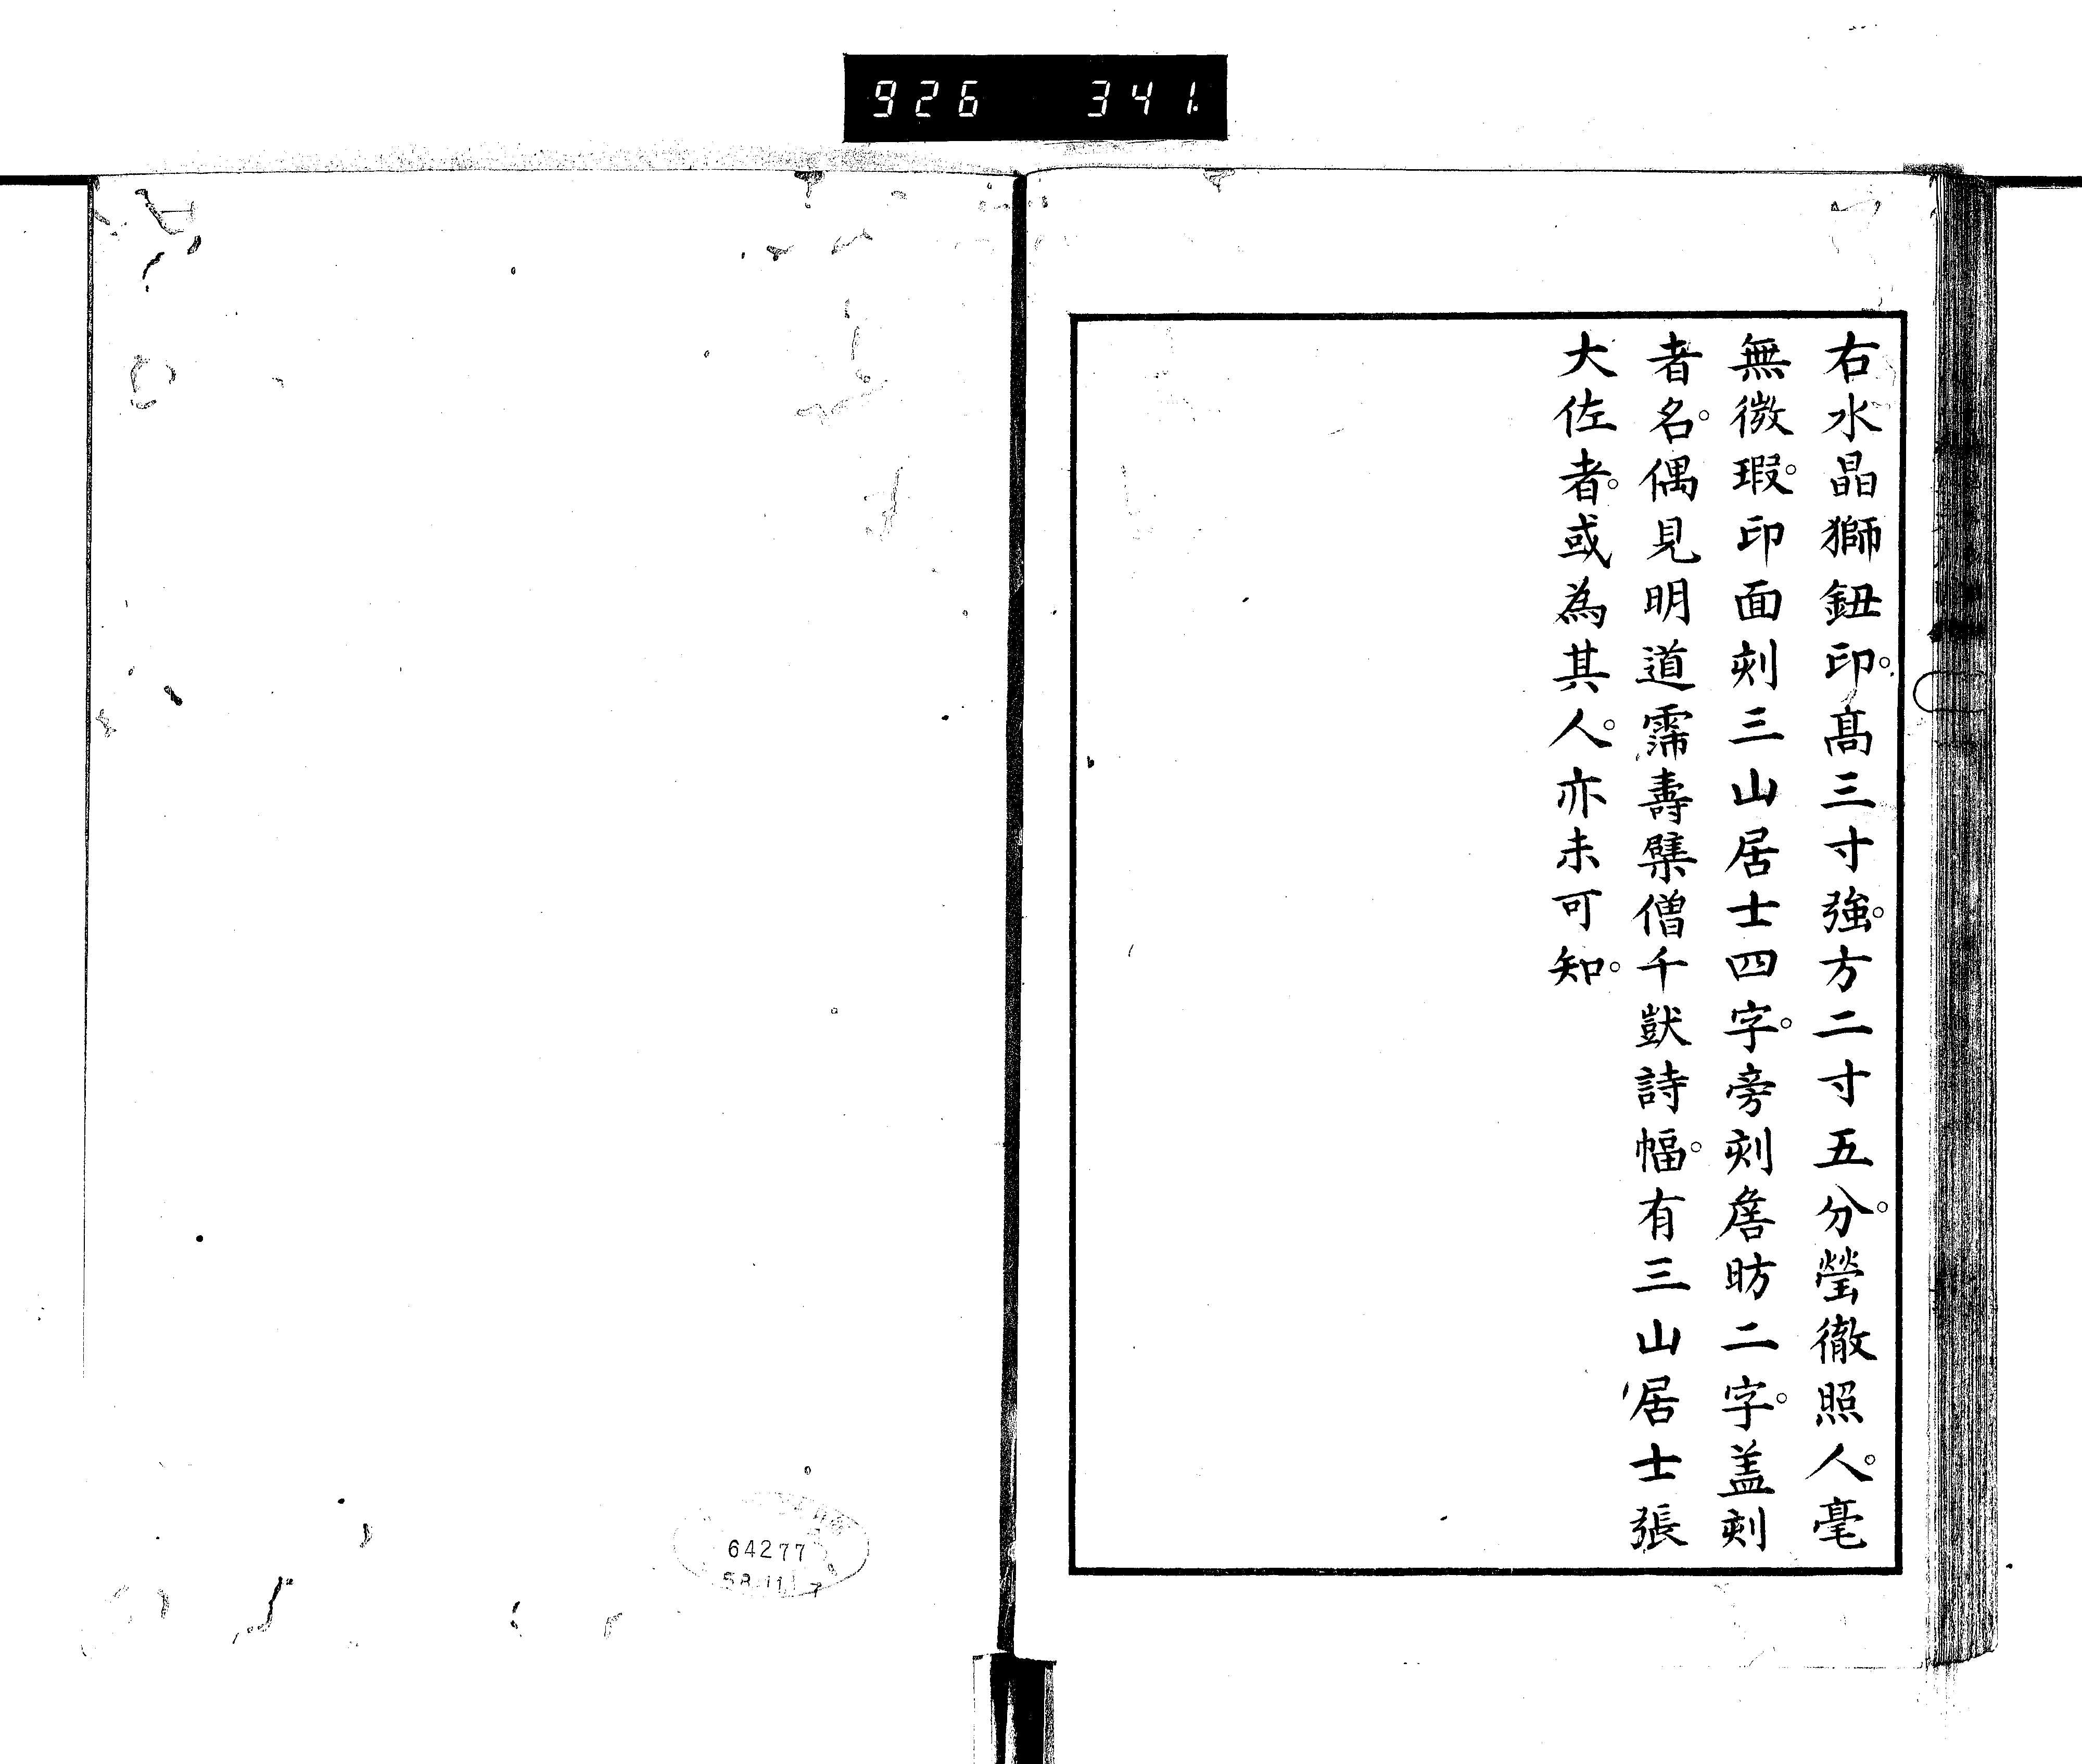 926 341
右水晶獅鈕印。高三寸強。方二寸五分。瑩徹照人。毫
無微瑕。印面刻三山居士四字。旁刻詹昉二字。盖刻
者名。偶見明道霈壽檗僧千獃詩幅。有三山居士張
大佐者。或為其人。亦未可知。
64277